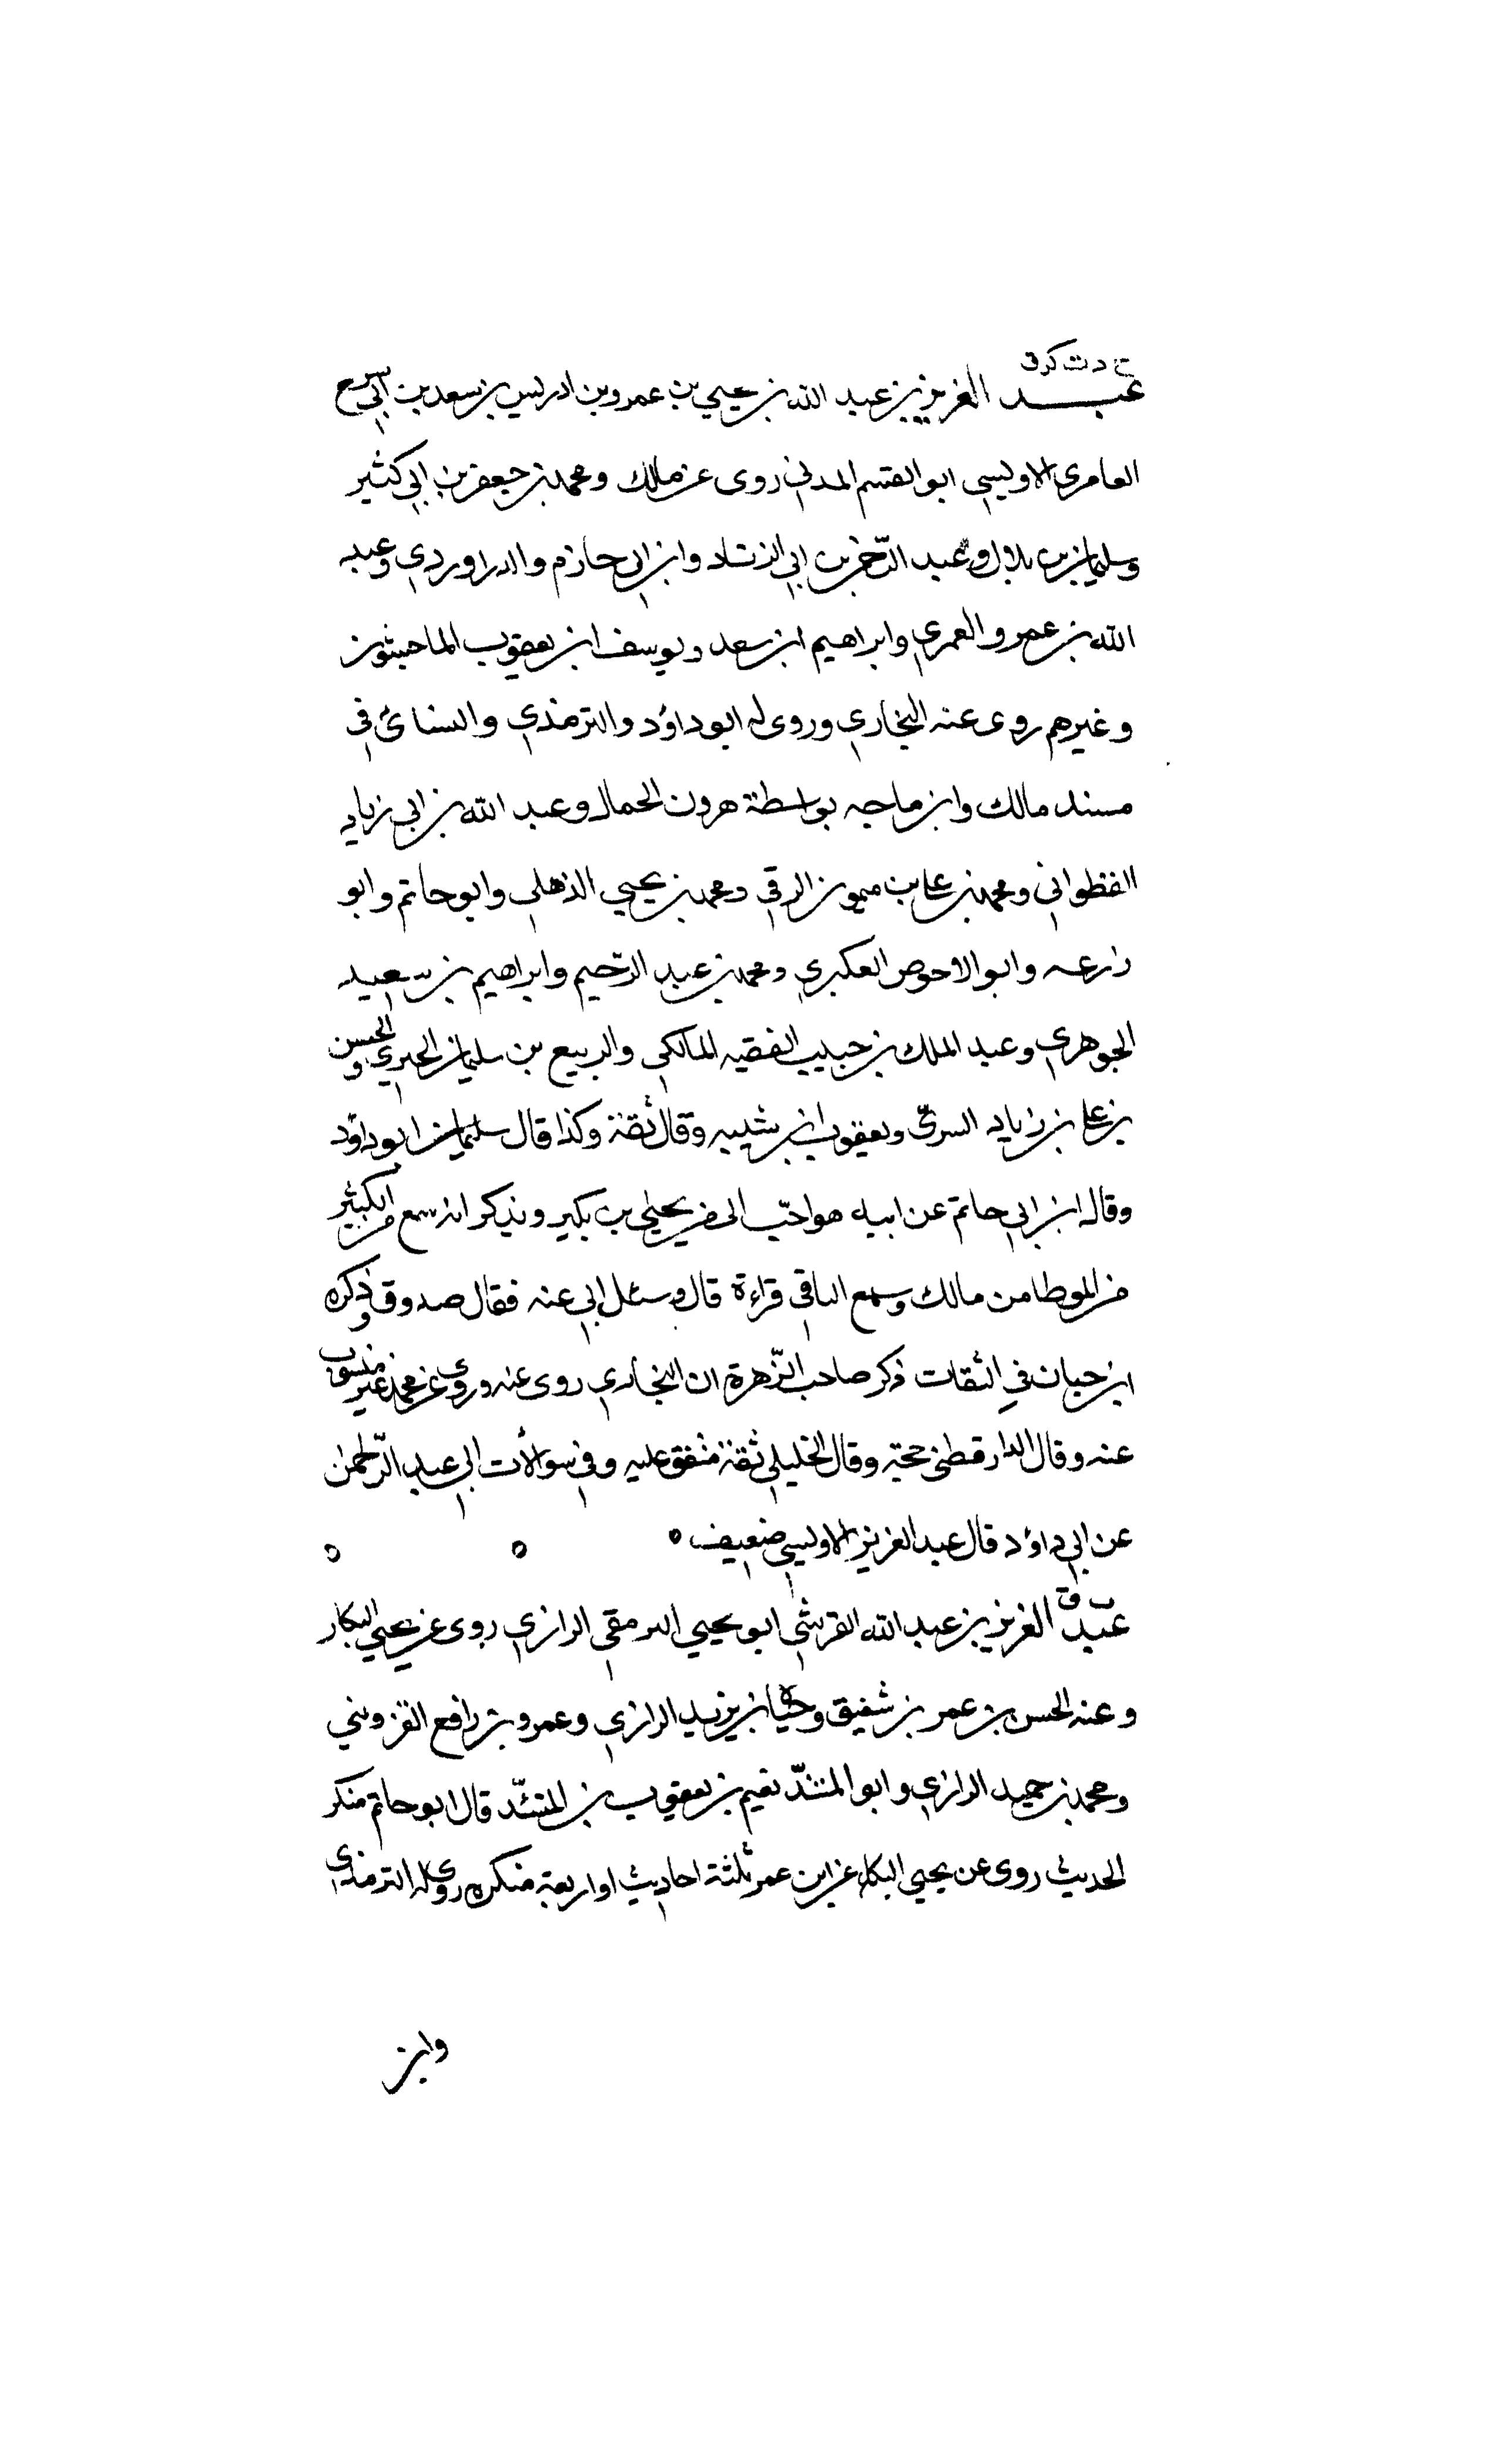 خ د ت كن ق
عبد العزيز بن عبد الله بن يحيي بن عمرو بن ادريس بن سعد بن ابي سرح
العامري الاويسي ابو القسم المدني روى عن مالك ومحمد بن جعفر بن ابي كثير
وسليمان بن بلال وعبد الرحمن بن ابي الزناد وابن ابي حازم والدراوردي وعبد
الله بن عمر والعمري وابراهيم ابن سعد ويوسف ابن يعقوب الماجشون
وغيرهم روى عنه البخاري وروى له ابو داؤد والترمذي والنسائ في
مسند مالك وابن ماجه بواسطة هرون الحمال وعبد الله بن ابي زياد
القطواني ومحمد بن علي بن ميمون الرقي ومحمد بن يحيي الذهلي وابو حاتم وابو
زارعه وابو الاحوص العكبري ومحمد بن عبد الرحيم وابراهيم بن سعيد
الجوهري وعبد الملك بن حبيب الفقيه المالكي والربيع بن سليمان الجيزي والحسن
بن علي بن زياد السري ويعقوب ابن شيبه وقال ثقة وكذا قال سليمان ابو داؤد
وقال ابن ابي حاتم عن ابيه هو احب الى من يحيي بن بكير ويذكر انه سمع الكثير من
من الموطا من مالك وسمع الباقي قراءة قال وسئل ابي عنه فقال صدوق وذكره
ابن حبان في الثقات ذكر صاحب الزهرة ان البخاري روى عنه وروى عن محمد غير منسوب
عنه وقال الدارقطني حجة وقال الخليلي ثقة متفق عليه وفي سوالات ابي عبد الرحمن
عن ابي داؤد قال عبد العزيز الاويسي ضعيف ه ه ه
ت ق
عبد العزيز بن عبد الله القرشي ابو يحيي النرمقي الرازي روى عن يحيي البكار
وعنه الحسن بن عمر بن شفيق وحياة بن يزيد الرازي وعمرو بن رافع القزويني
ومحمد بن حميد الرازي وابو المتئد نعيم بن يعقوب بن المتئد قال ابو حاتم منكر
الحديث روى عن يحيي البكار عن ابن عمر ثلثة احاديث او اربعة منكره روى له الترمذي
وابن